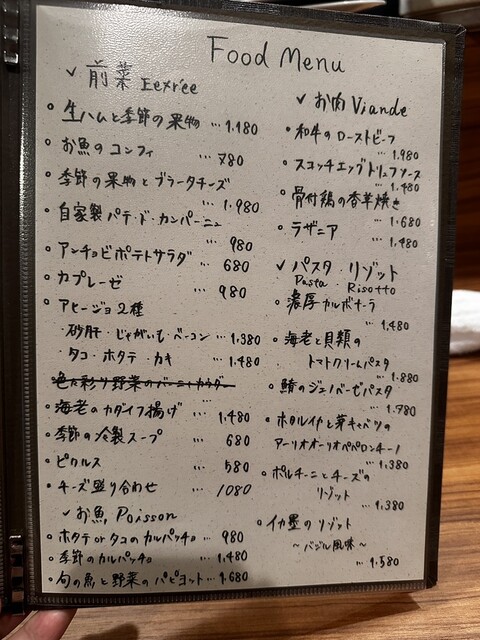 Food Menu
✓ 前菜 Eetrée
• 生ハムと季節の果物 … 1.180
• お魚のコンフィ … 780
• 季節の果物とブラータチーズ … 1.980
• 自家製パテ・ド・カンパーニュ … 980
• アンチョビポテトサラダ … 680
• カプレーゼ … 980
• アヒージョ2種
砂肝・じゃがいも・ベーコン … 1,380
タコ・ホタテ・カキ … 1.480
色た彩り野菜のバーニャカウダー
• 海老のカダイフ揚げ … 1,480
• 季節の冷製スープ … 680
• ピクルス … 580
• チーズ盛り合わせ … 1080
✓ お魚 Poisson
• ホタテorタコのカルパッチョ … 980
• 季節のカルパッチョ … 1,480
• 旬の魚と野菜のパピヨット … 1.680
✓ お肉 Viande
• 和牛のローストビーフ … 1.980
• スコッチエッグトリュフソース … 1.480
• 骨付鶏の香草焼き … 1.680
• ラザニア … 1,480
✓ パスタ・リゾット
Pasta Risotto
• 濃厚カルボナーラ … 1,480
• 海老と貝類の
トマトクリームパスタ … 1.880
• 鯖のジェノベーゼパスタ … 1.780
• ホタルイカと芽キャベツの
アーリオオーリオペペロンチーノ … 1,380
• ポルチーニとチーズの
リゾット … 1,380
• イカ墨のリゾット
～バジル風味～ … 1.580